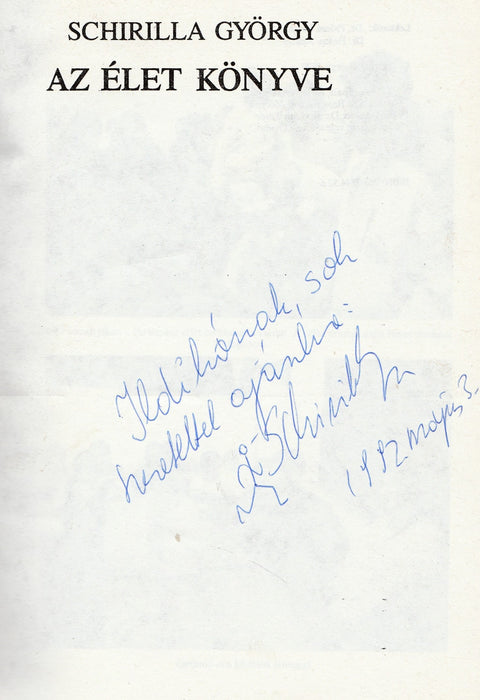 SCHIRILLA GYÖRGY
AZ ÉLET KÖNYVE
Ildikónak, sok
szeretettel ajánlva:
Schirilla Gy
1992. május 3.